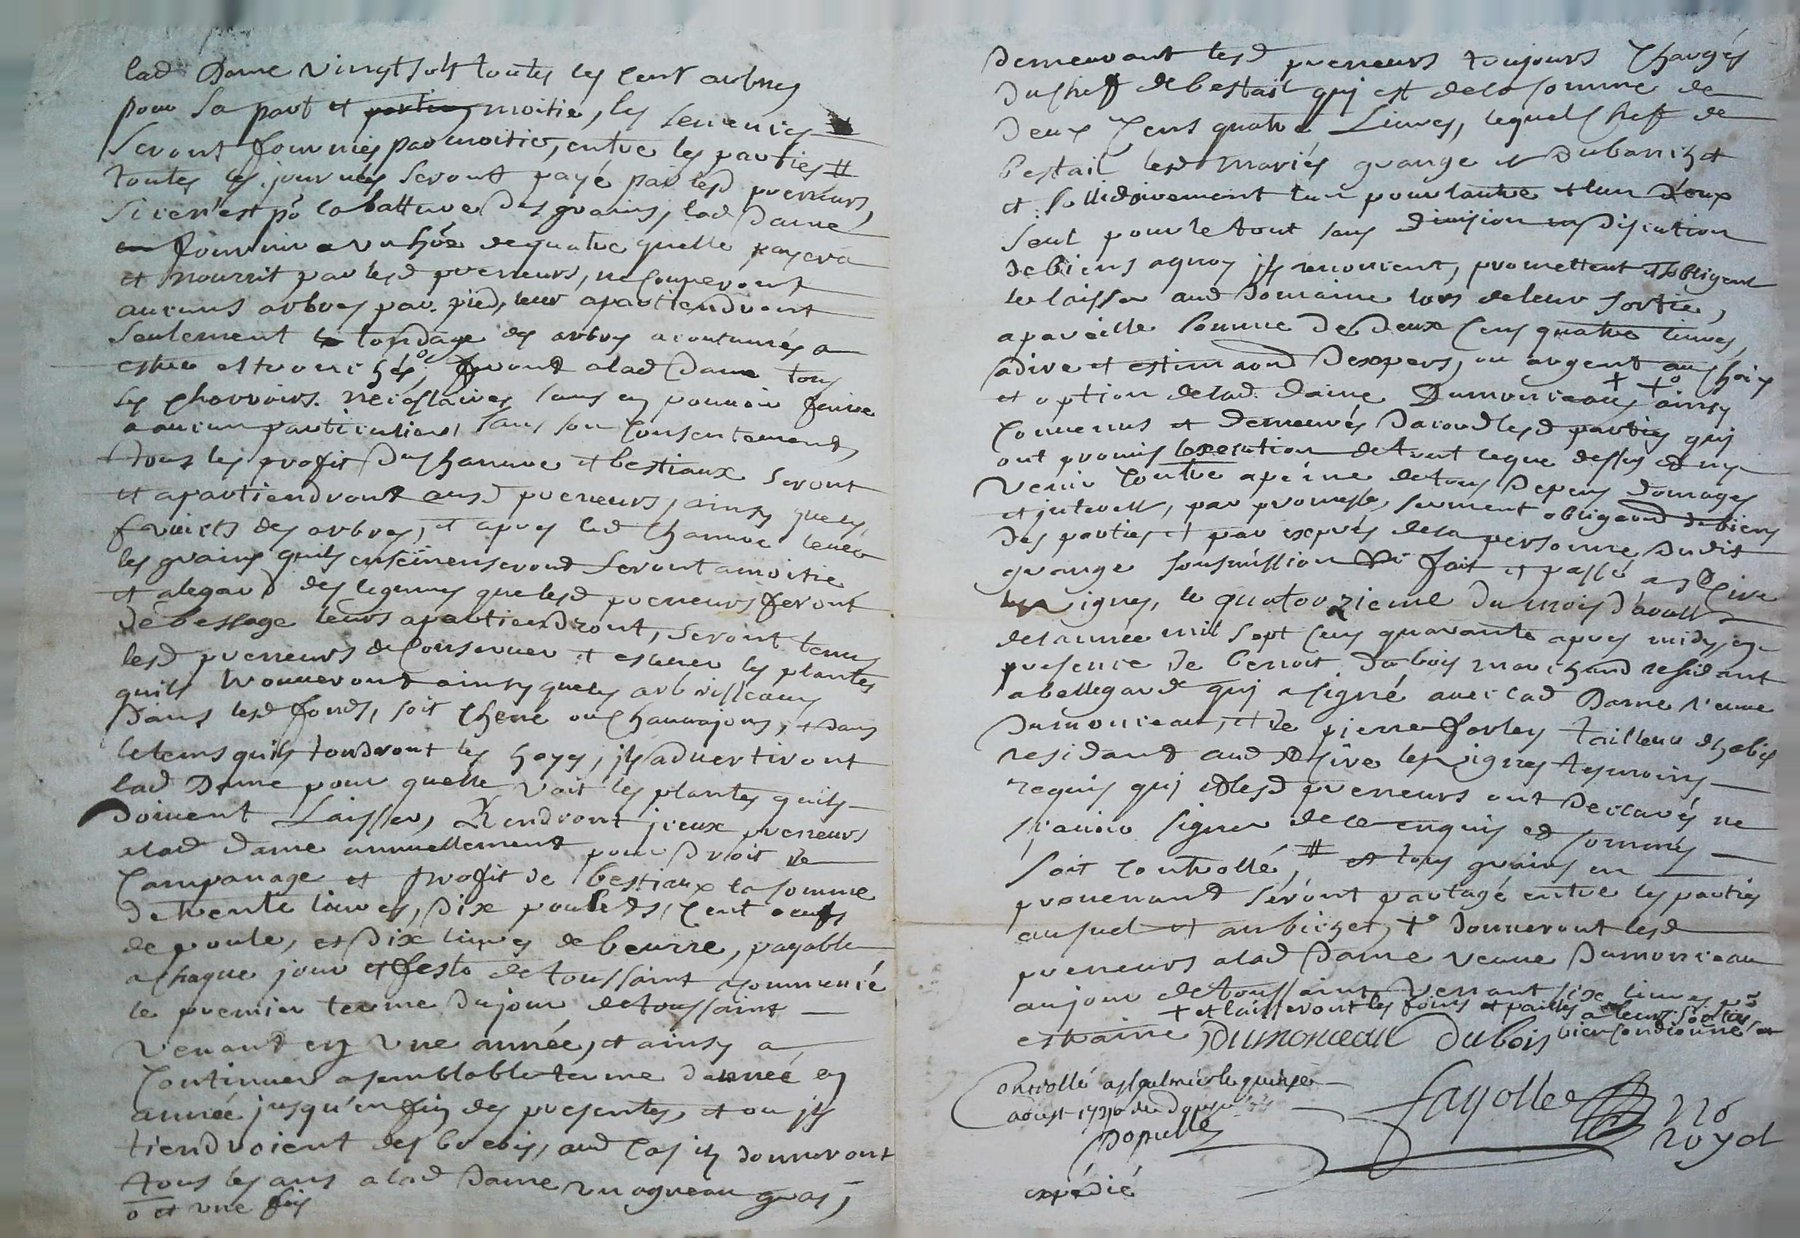 lad Dame vingt solz toutes les cent arbres
pour sa part et moitie, les semences
seront fournies par moitie, entre les parties #
toutes les journées seront payé par lesd preneurs,
si ce n'est po la batture des grains, lad Dame
fournira un hōe de quatre quelle payera
et nourrit par lesd preneurs, ne couperont
aucuns arbres par pied, leur apartiendront
seulement le tondage des arbres acoutumés a
estre etronchés, feront a lad Dame tous
les charrois necessaires sans en pouvoir faire
a aucun particulier, sans son consentement
tous les profit du chanvre et bestiaux seront
et apartiendront ausd preneurs, ainsy que les
fruicts des arbres, et apres led chanvre levé
les grains quils ensemenseront seront a moitie
et alegard des legumes que lesd preneurs feront
leurs apartiendront, seront tenus
lesd preneurs de conserver et eslever les plantes
quils trouveront ainsy que les arbrisseaux
dans lesd fonds, soit chene ou et dans
le tems quils tondront les hayes, ils advertiront
lad Dame pour quelle voit les plantes quils
doivent laisser, Rendront iceux preneurs
a lad Dame annuellement pour droit de
campanage et profit de bestiaux la somme
de trente livres, dix poulets, cent oeufs
de poule, et dix livres de beurre, payable
a chaque jour et feste de toussaint a commencé
le premier terme du jour de toussaint
venant en une année, et ainsy a
continuer a semblable terme dannée en
année jusqu'en fin des presentes, et ou ils
tiendroient des brebis, aud cas ils donneront
tous les ans a lad Dame un agneau gras,
o et une fois
demeurant lesd preneurs toujours chargés
du cheff de bestail qui est de la somme de
deux cens quatre Livres, lequel cheff de
bestail lesd mariés grange et dubanchet
et sollidairement lun pour lautre et lun deux
seul pour le tout sans division ny discution
de biens a quoy ils renoncent, promettent et sobligent
le laisser aud Domaine lors de leur sortie,
a pareille somme de deux cens quatre livres,
a dire et estimaōn dexpers, ou argent au choix
et option de lad Dame Dumonceau + +o ainsy
convenus et demeurés dacord lesd parties qui
ont promis lexecution de tout ce que dessus et ny
venir contre a peine de tous depens domages
et interest, par promesse, serment obligeaōn de biens
des parties et par exprés de la personne dudit
grange sousmission &c fait et passé a st Cire
les vignes, le quatorzieme du mois d'aoust
de lannée mil sept cens quarante apres midy en
presence de benoit dubois marchand residant
a bellegarde qui a signé avec lad Dame veuve
Dumonceau, et de pierre forley tailleur dhabis
residant aud st Cire les vignes tesmoins
requis qui et lesd preneurs ont declarés ne
scavoir signer de ce enquis et sommés
soit controllé, # et tous grains en
provenant seront partagé entre les parties
au suel et au bichet, +o donneront lesd
preneurs a lad Dame veuve Dumonceau
au jour de toussaint venant six livres po
+ et laisseront les foins et pailles a leur sortie
estraine Dumonceau Dubois bien conditionné
Controllé a st galmier le quinze
aoust 1740
Dopulle
fayolle no
royal
expédié